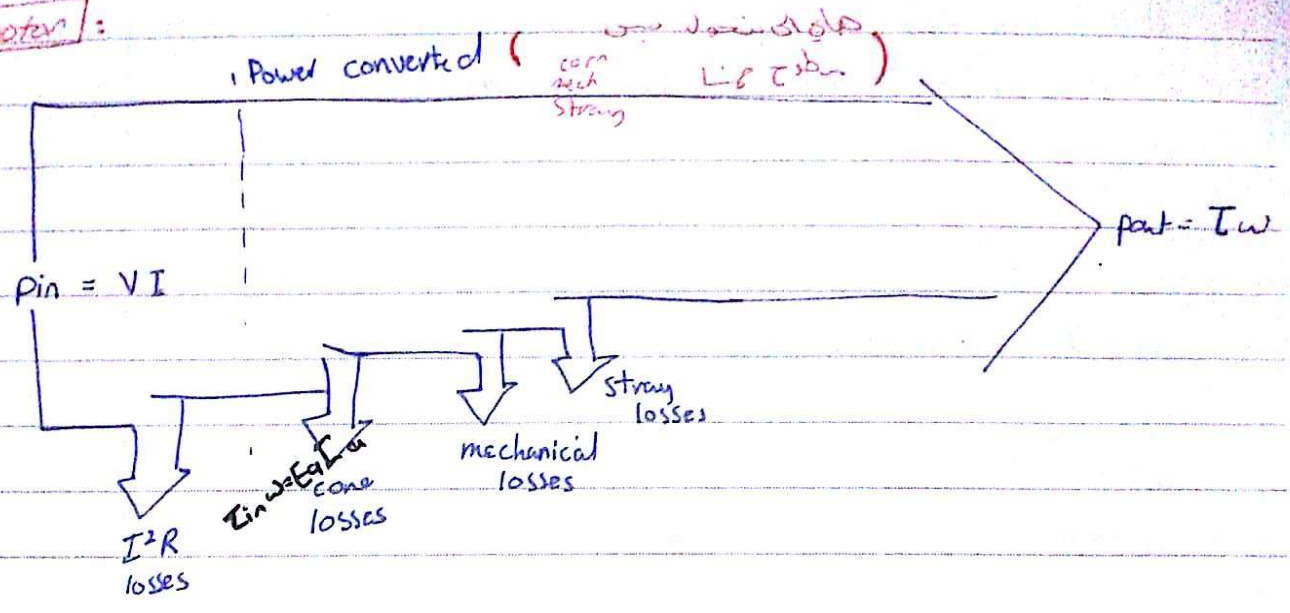 otor :
Power converted (
core
mech
Stray
)
Pin = VI
Pout = τω
Stray
losses
mechanical
losses
τin ω = Ea Ia
core
losses
I²R
losses